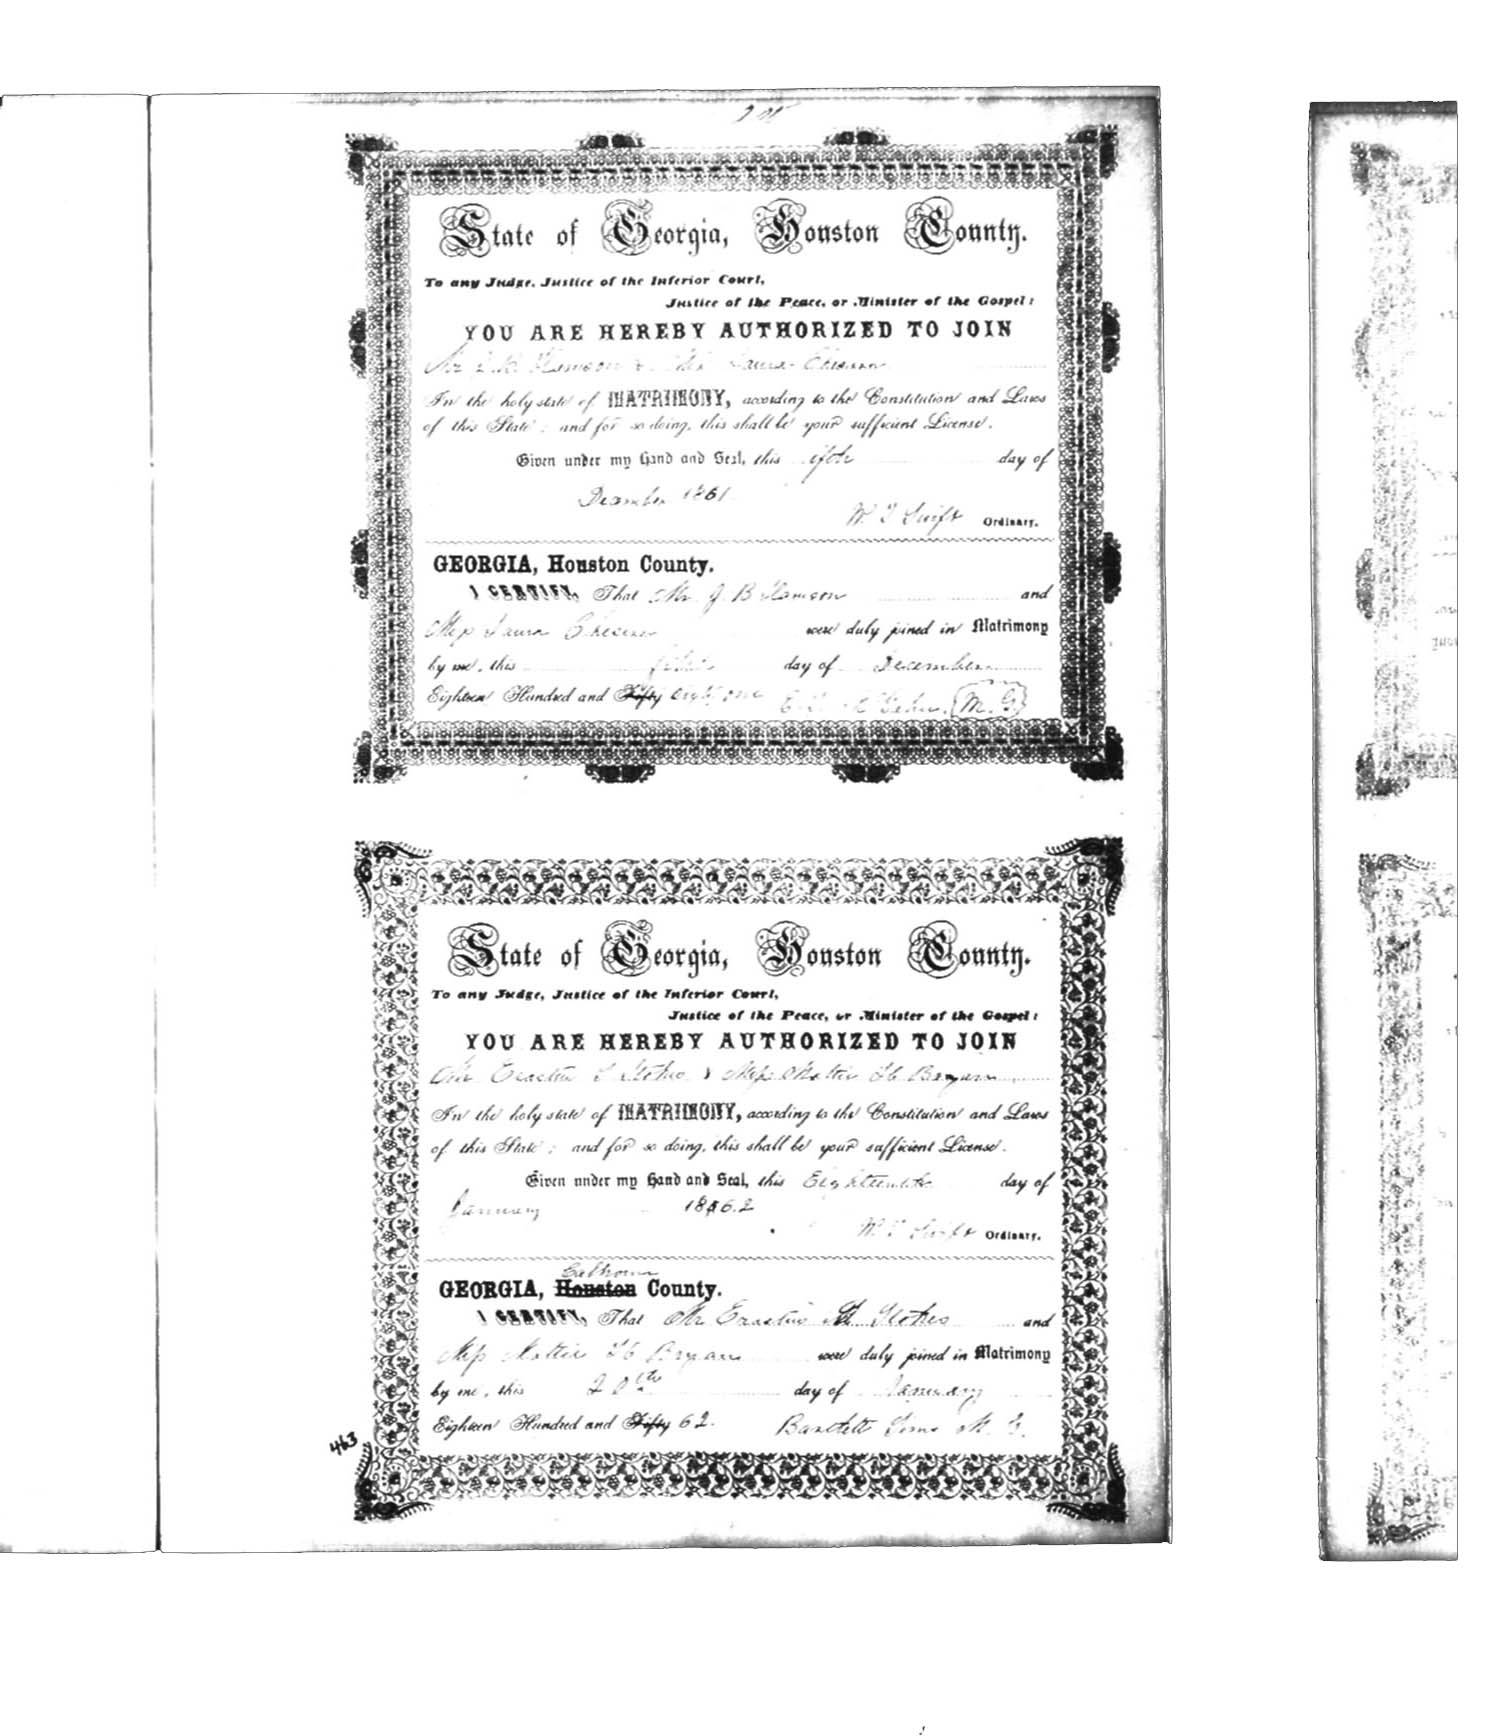 State of Georgia, Houston County.
To any Judge, Justice of the Inferior Court,
Justice of the Peace, or Minister of the Gospel:
YOU ARE HEREBY AUTHORIZED TO JOIN
Mr J. B. &
In the holy state of MATRIMONY, according to the Constitution and Laws
of this State; and for so doing, this shall be your sufficient License.
Given under my Hand and Seal, this day of
December 1861
W. T. Swift Ordinary.
GEORGIA, Houston County.
I CERTIFY, That Mr J B and
Miss Laura were duly joined in Matrimony
by me, this day of December
Eighteen Hundred and Fifty one M. G.
State of Georgia, Houston County.
To any Judge, Justice of the Inferior Court,
Justice of the Peace, or Minister of the Gospel:
YOU ARE HEREBY AUTHORIZED TO JOIN
Mr Erastus Stokes & Miss Mattie H Bryan
In the holy state of MATRIMONY, according to the Constitution and Laws
of this State; and for so doing, this shall be your sufficient License.
Given under my Hand and Seal, this Eighteenth day of
January 1862
W. T. Swift Ordinary.
Calhoun
GEORGIA, Houston County.
I CERTIFY, That Mr Erastus Stokes and
Miss Mattie H Bryan were duly joined in Matrimony
by me, this 20th day of January
Eighteen Hundred and Fifty 62. Bartlett Sims M. G.
463